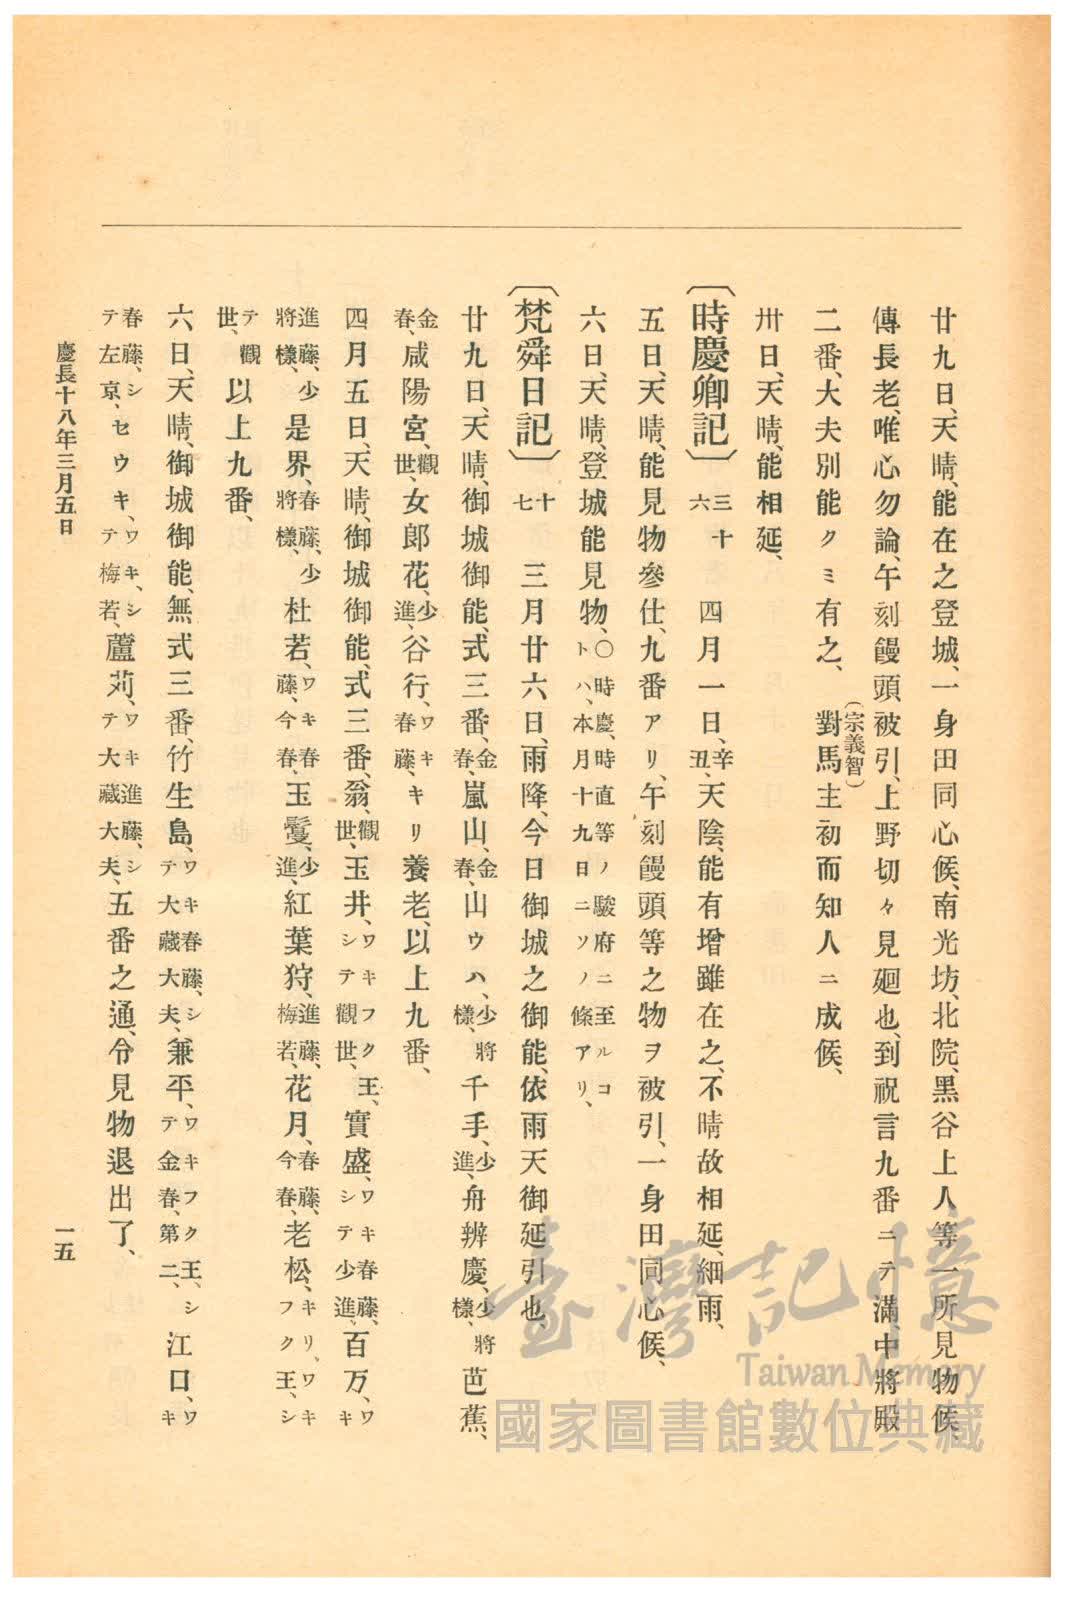 廿九日、天晴、能在之登城、一身田同心候、南光坊、北院、黑谷上人等一所見物候、
傳長老、唯心勿論、午刻饅頭被引、上野切々見廻也、到祝言九番ニテ滿、中將殿
二番、大夫別能クミ有之、對馬主初而知人ニ成候、
(宗義智)
卅日、天晴、能相延、
〔時慶卿記〕三十六 四月一日、辛丑、天陰、能有增雖在之、不晴故相延、細雨、
五日、天晴、能見物參仕、九番アリ、午刻饅頭等之物ヲ被引、一身田同心候、
六日、天晴、登城能見物、〇時慶、時直等ノ駿府ニ至ルコトハ、本月十九日ニソノ條アリ、
〔梵舜日記〕十七 三月廿六日、雨降、今日御城之御能、依雨天御延引也、
廿九日、天晴、御城御能、式三番、金春、嵐山、金春、山ウハ、少將樣、千手、少進、舟辨慶、少將樣、芭蕉、
金春、咸陽宮、觀世、女郎花、少進、谷行、ワキ春藤、キリ養老、以上九番、
四月五日、天晴、御城御能、式三番、翁、觀世、玉井、ワキフク王、シテ觀世、實盛、ワキ春藤、シテ少進、百万、ワキ
進藤、少將樣、是界、春藤、少將樣、杜若、ワキ春藤、今春、玉鬘、少進、紅葉狩、進藤、梅若、花月、春藤、今春、老松、キリ、ワキフク王、シ
テ觀世、以上九番、
六日、天晴、御城御能、無式三番、竹生島、ワキ春藤、シテ大藏大夫、兼平、ワキフク王、シテ金春、第二、江口、ワキ
春藤、シテ左京、セウキ、ワキ、シテ梅若、蘆苅、ワキ進藤、シテ大藏大夫、五番之通、令見物退出了、
慶長十八年三月五日
一五
臺灣記憶
Taiwan Memory
國家圖書館數位典藏